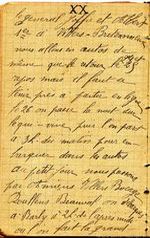 XX
le général Joffre et Albert
1er à Villers-Bretonneux
nous allons en autos de
même que le retour
repos mais il faut se
tenir prêts à partir en ligne
le 26 on passe le nuit
vive pour l'on part
à 3h. du matin pour em-
barquer dans les autos
au petit jour nous passons
par Amiens Villers Bocage
Doullens Beauval on
à Barly à 2h de l'après midi
où l'on fait la grand